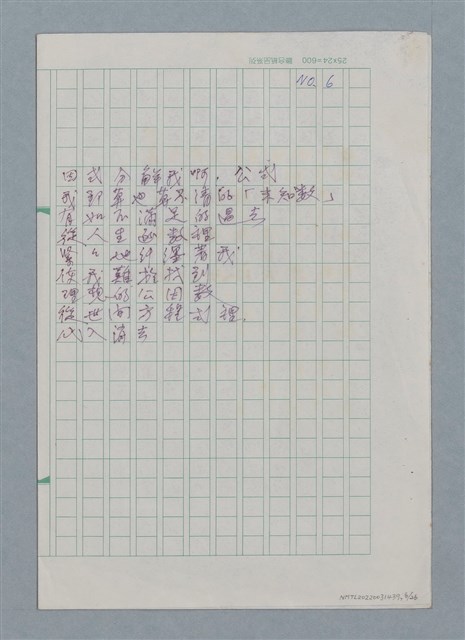 25×24=600
NO. 6
因式分解我啊,公式
我卻算也算不清的「未知數」
有如不滿足的過去
從人生函數裡
緊々地糾纏著我
使我難於找到
理想的公因數
從世间方程式裡,
代入消去